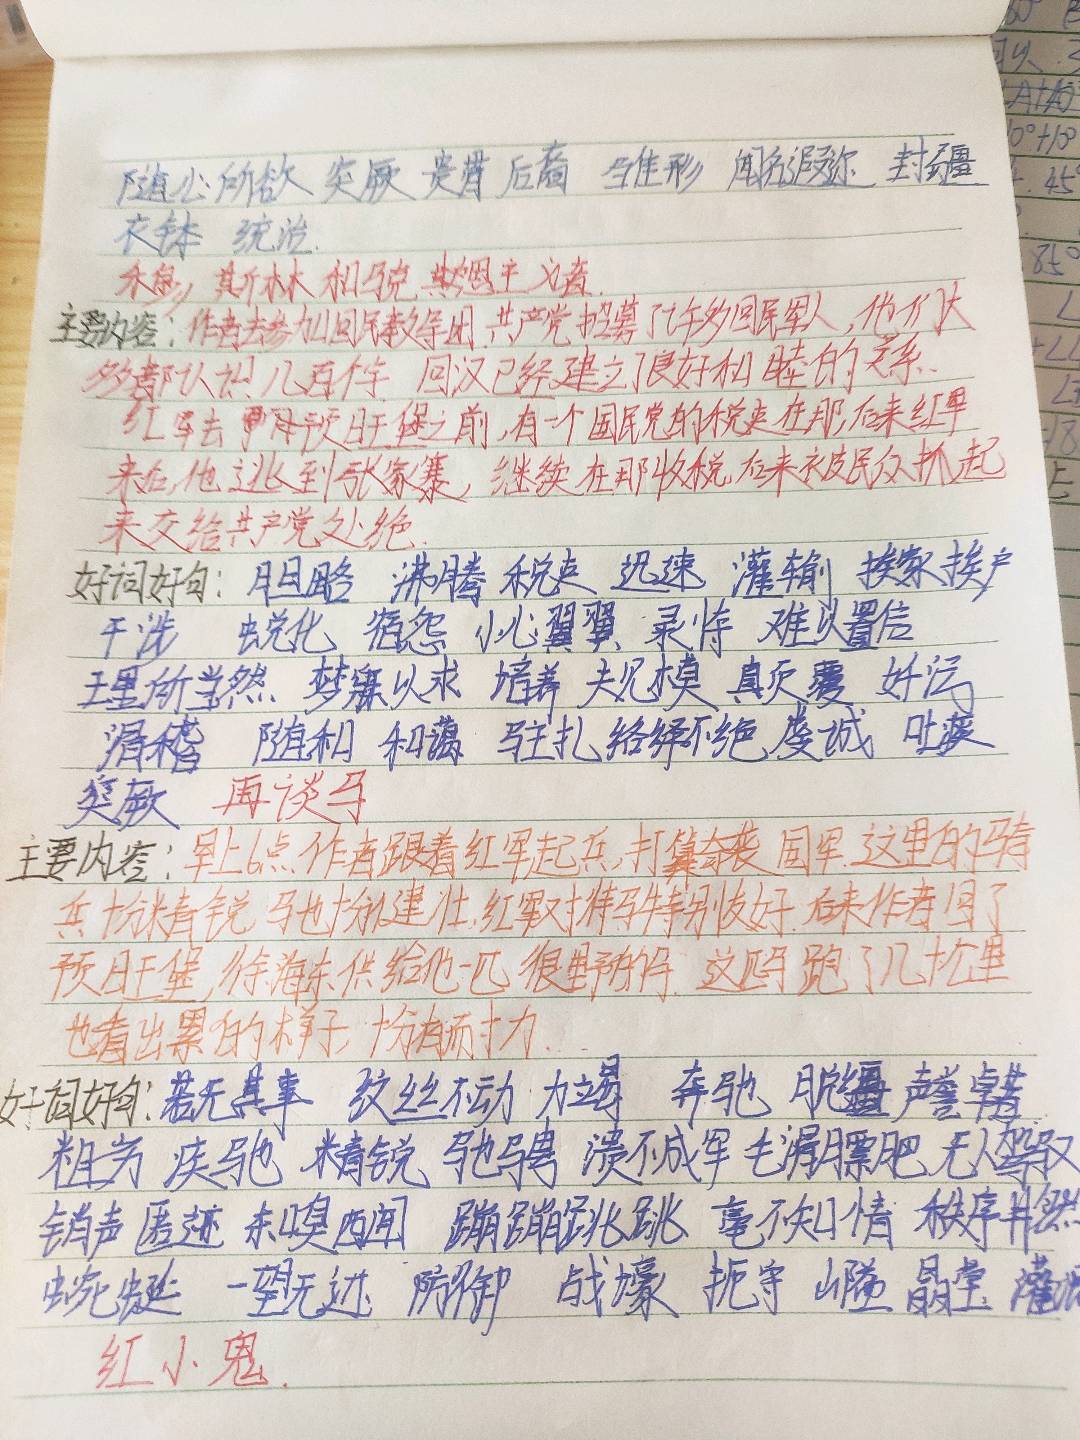 随心所欲 突厥 贵胄 后裔 雏形 闻名遐迩 封疆
衣钵 统治.
朱, 斯林和马克 共产主义者.
主要内容: 作者去参加回民教导团 共产党招募了许多回民军人, 他们大
多都认识几百个字 回汉已经建立了良好和睦的关系.
红军去 预旺堡之前, 有一个国民党的税吏在那, 后来红军
来后, 他逃到张家寨, 继续在那收税, 后来被民众抓起
来交给共产党处绝.
好词好句: 胆略 沸腾 税吏 迅速 灌输 挨家挨户
干涉 蜕化 宿怨 小心翼翼 难以置信
理所当然 梦寐以求 培养 规模 颠覆
滑稽 随和 和蔼 驻扎 络绎不绝 虔诚
突厥 再谈马
主要内容: 早上6点 作者跟着红军起兵, 打算奇袭国军. 这里的骑
兵十分精锐 马也十分健壮. 红军对待马特别友好. 后来作者回了
预旺堡, 徐海东供给他一匹很野的马. 这匹马跑了几十公里
也看出累的样子, 十分有耐力...
好词好句: 若无其事 纹丝不动 力竭 奔驰 脱缰 声誉卓著
粗劣 疾驰 精锐 驰骋 溃不成军 毛滑膘肥 无人驾驭
销声匿迹 东嗅西闻 蹦蹦跳跳 毫不知情 秩序井然
蜿蜒 一望无边 防御 战壕 扼守 山隘
红小鬼.